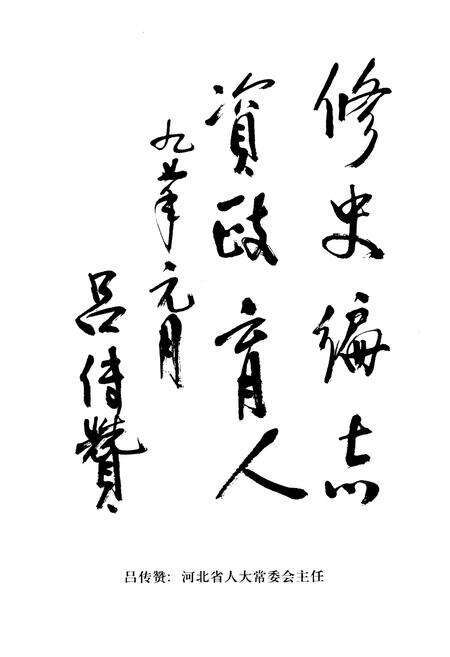 修史编志
資政育人
九五年元月
吕传贊
吕传赞：河北省人大常委会主任